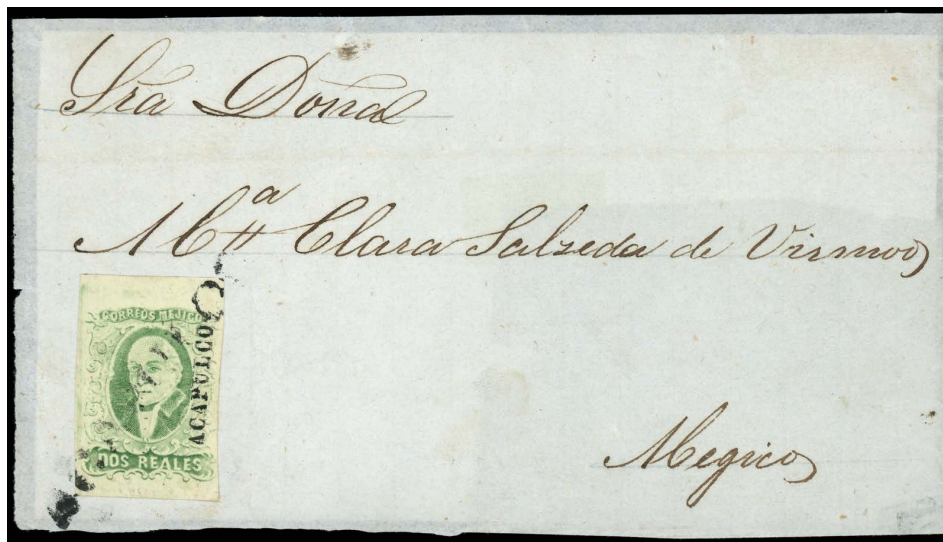 Sra Doña
Mª Clara Salzeda de Virmoo
CORREOS MEJICO
ACAPULCO
DOS REALES
Megico